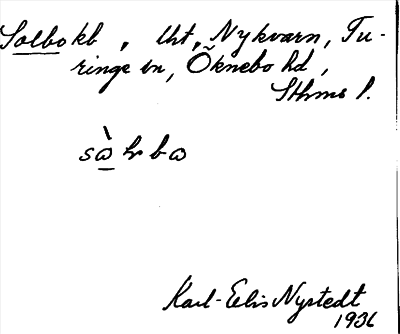 Solbo kb, lht, Nykvarn, Tu-
ringe sn, Öknebo hd,
Sthms l.
Karl-Edis Nystedt
1936